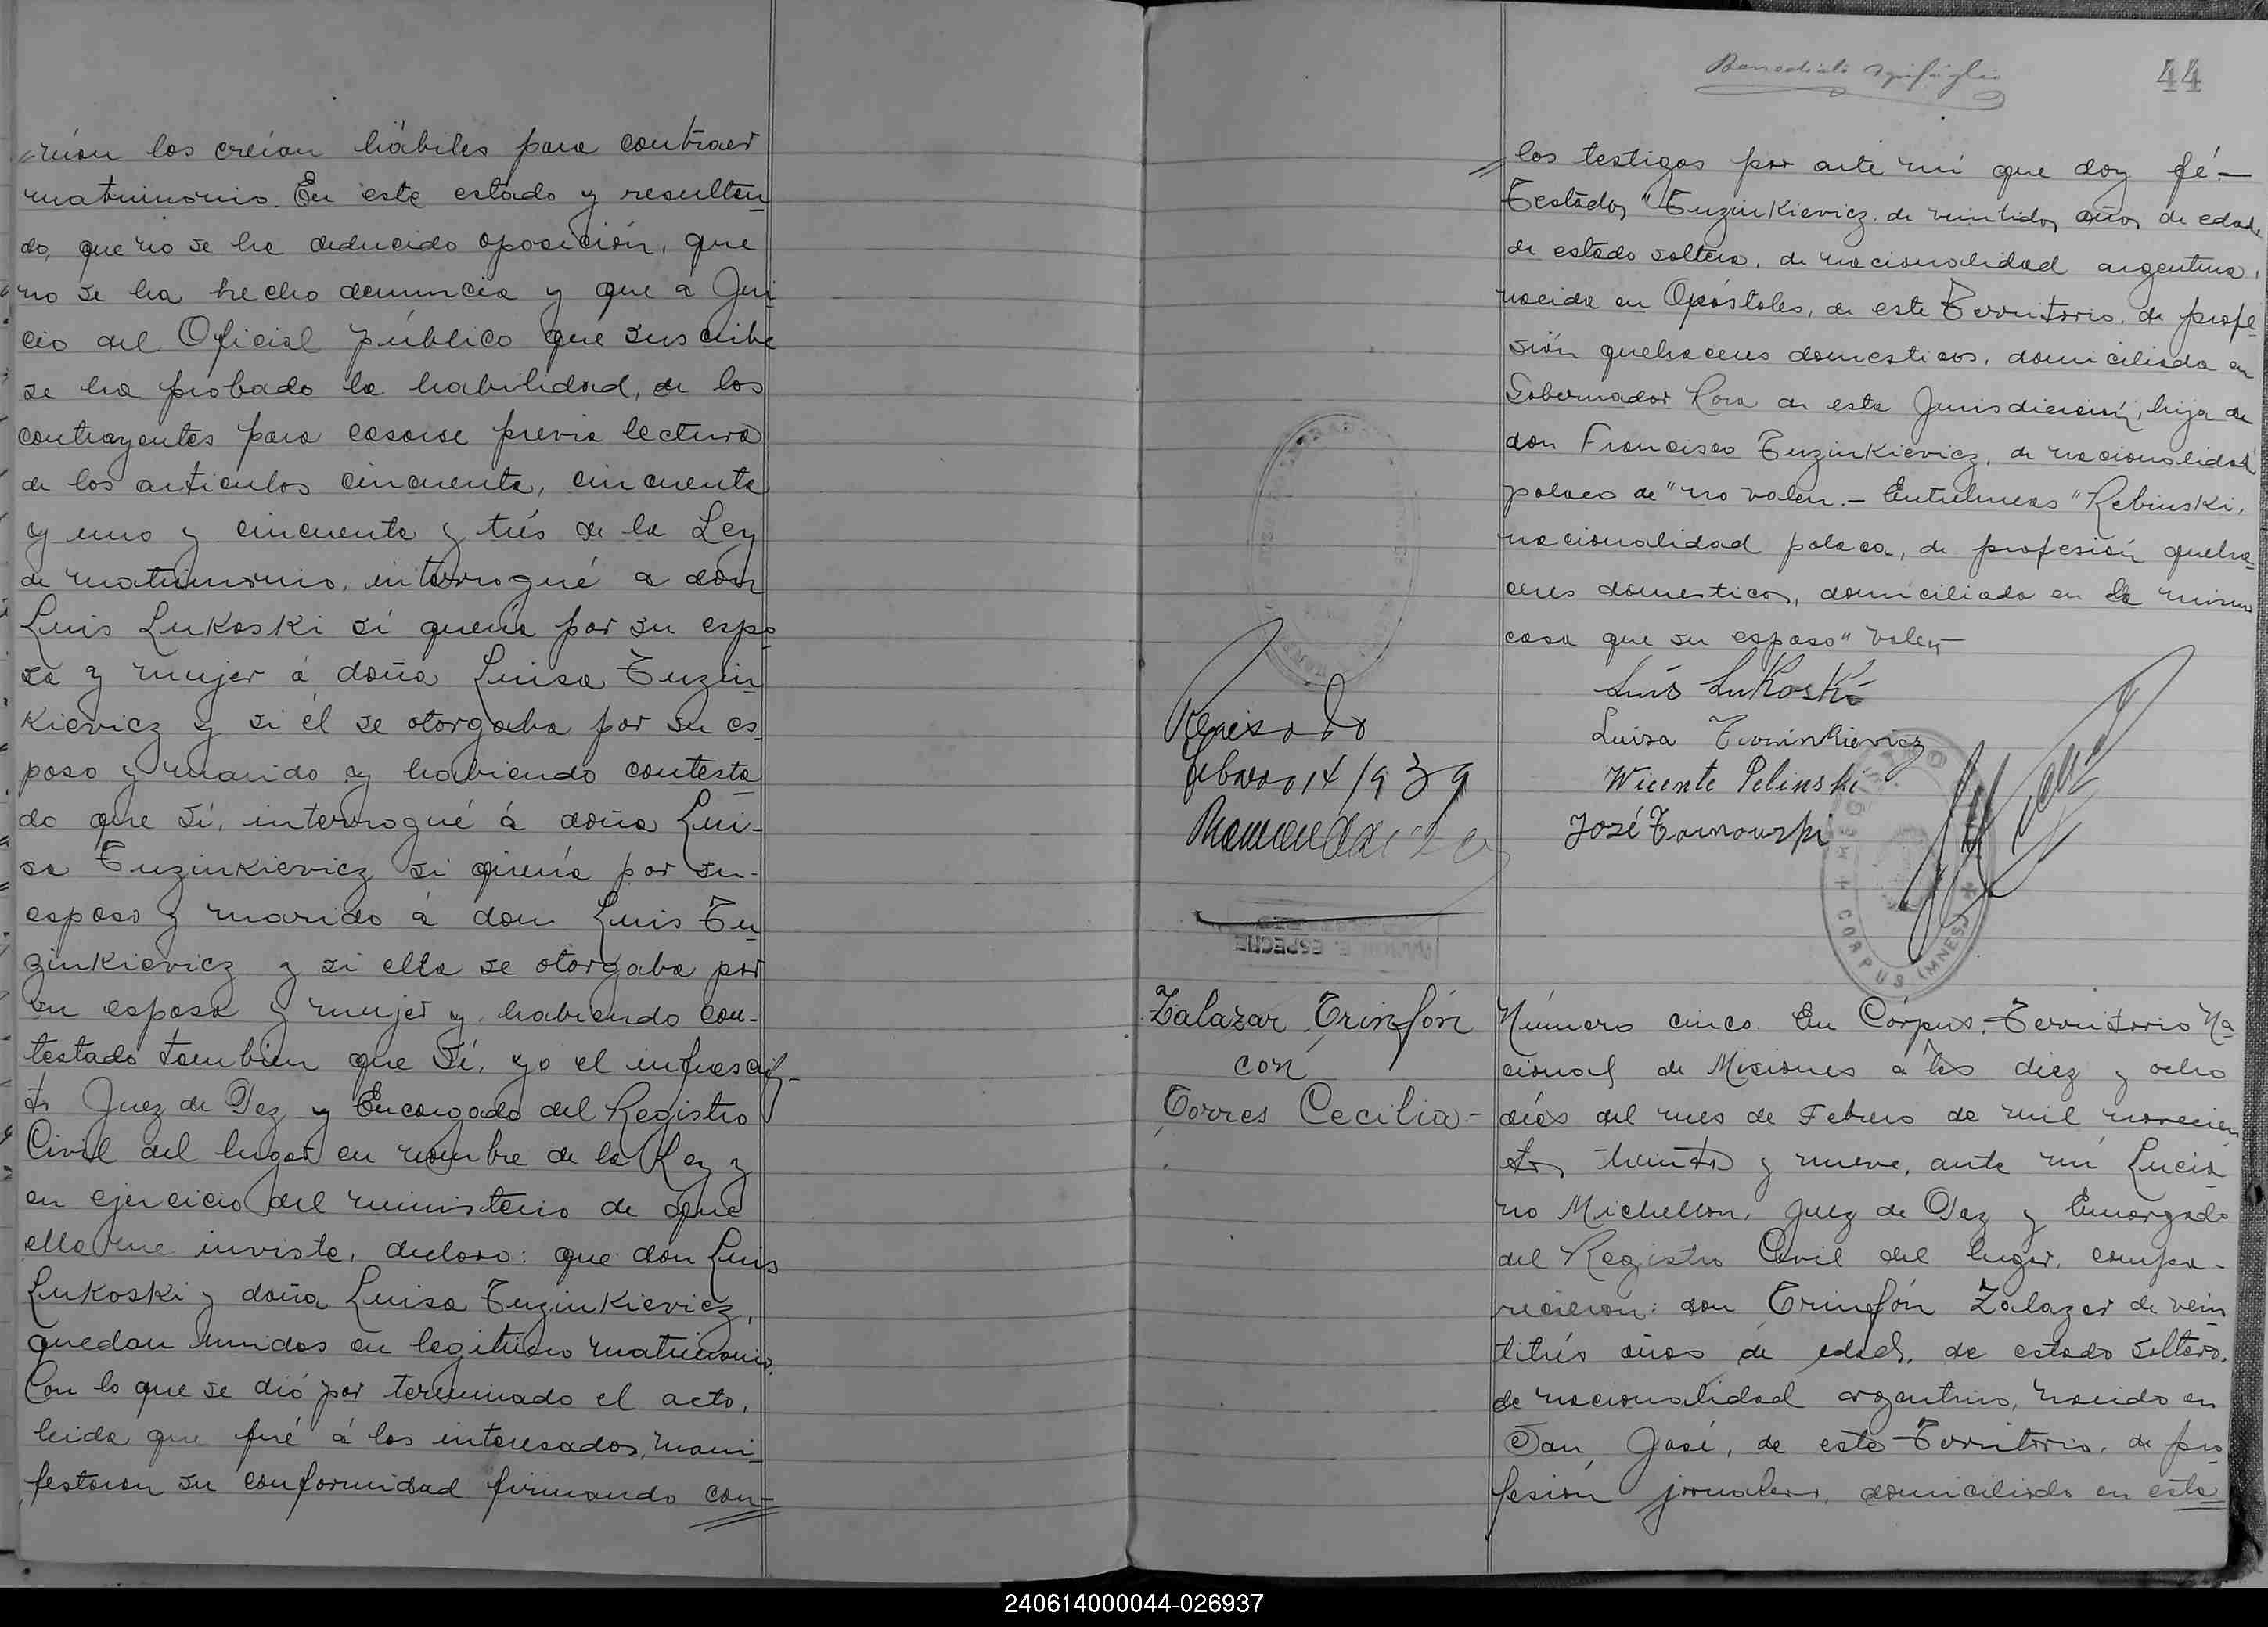 rián los creían hábiles para contraer
matrimonio. En este estado y resultan-
do, que no se ha deducido oposición, que
no se ha hecho denuncia y que a Jui
cio del Oficial público que suscribe
se ha probado la habilidad, de los
contrayentes para casarse previa lectura
de los artículos cincuenta, cincuenta
y uno y cincuenta y trés de la Ley
de matrimonio, interrogué a don
Luis Lukoski si quería por su espo-
sa y mujer á doña Luisa Tuzin-
Kievicz y si él se otorgaba por su es-
poso y marido y habiendo contesta-
do que sí, interrogué á doña Lui-
sa Tuzinkievicz si quería por su-
esposo y marido á don Luis Tu-
zinkievicz y si ella se otorgaba por
su esposa y mujer y habiendo con-
testado tambien que sí, yo el infrascri-
to Juez de Paz y Encargado del Registro
Civil del lugar en nombre de la Ley y
en ejercicio del ministerio de que
ella me inviste, declaro: que don Luis
Lukoski y doña Luisa Tuzinkievicz,
quedan unidos en legitimo matrimonio.
Con lo que se dió por terminado el acto,
leida que fué á los interesados, mani-
festaron su conformidad firmando con-
44
los testigos por ante mí que doy fé.-
Testados "Tuzinkievicz de veintidos años de edad,
de estado soltera, de nacionalidad argentina,
nacida en Opóstoles, de este Territorio, de profe-
sión quehaceres domesticos, domiciliada en
Gobernador Roca de esta Jurisdicción, hija de
don Francisco Tuzinkievicz, de nacionalidad
polaco de" no valen.- Entrelineas "Rebinski,
nacionalidad polaca, de profesión queha-
ceres domesticos, domiciliada en la misma
casa que su esposo" valen-
Luis Lukoski
Luisa Tuzinkievicz
Wicente Pelinski
José Tarnowski
Revisado
febrero 14/939
CORPUS (MNES)
ESPECHE
Zalazar Trinfón
con
Torres Cecilia-
Número cinco. En Córpus, Territorio Na-
cional de Misiones a los diez y ocho
días del mes de Febrero de mil novecien
tos treinta y nueve, ante mí Lucia-
no Michellon, Juez de Paz y Encargado
del Registro Civil del lugar, compa-
recieron: don Trinfón Zalazar de vein
titrés años de edad, de estado soltero,
de nacionalidad argentino, nacido en
San José, de este Territorio, de pro
fesión jornalero, domiciliado en esta
240614000044-026937